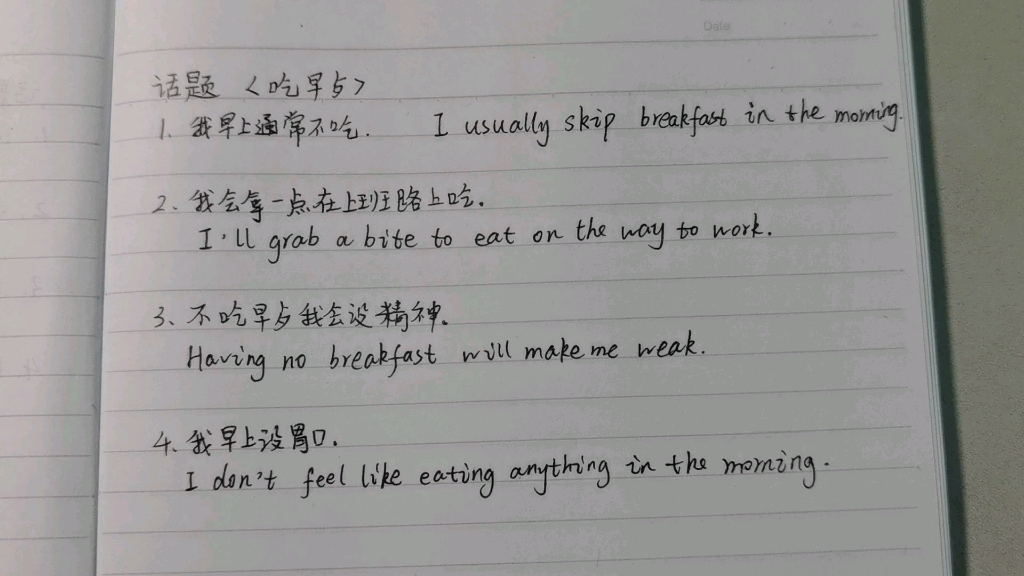 Date
话题 〈吃早点〉
1. 我早上通常不吃. I usually skip breakfast in the morning.
2、我会拿一点在上班路上吃.
I'll grab a bite to eat on the way to work.
3、不吃早点我会没精神.
Having no breakfast will make me weak.
4. 我早上没胃口.
I don't feel like eating anything in the morning.